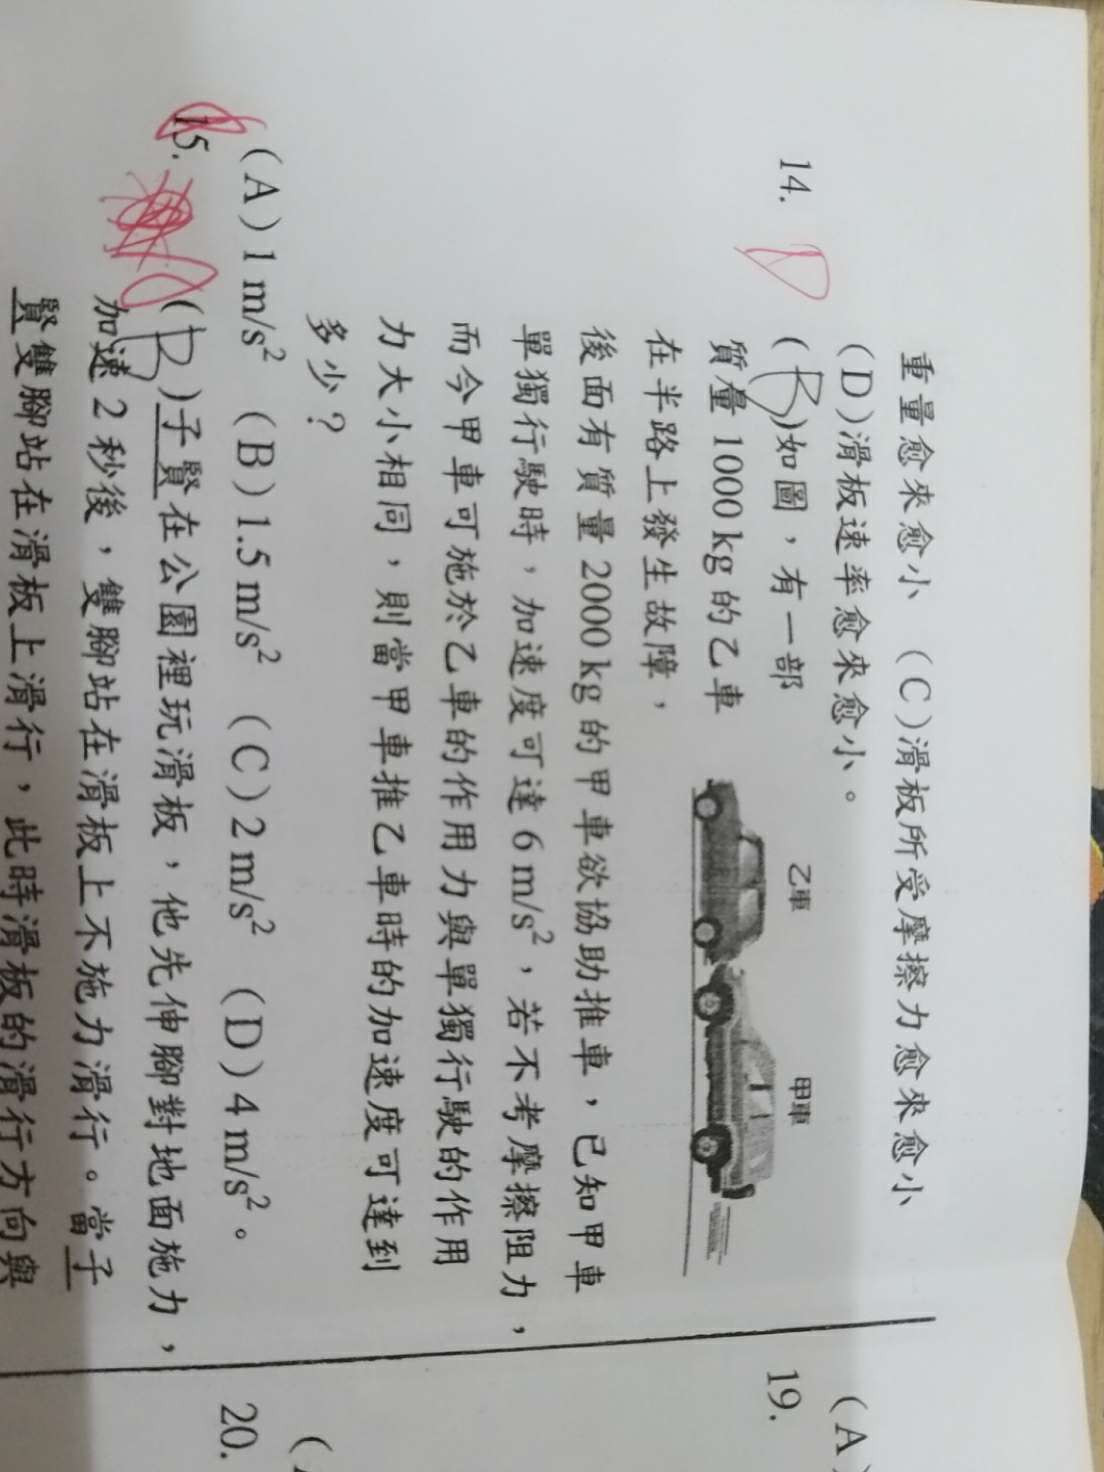 重量愈來愈小 (C)滑板所受摩擦力愈來愈小
(D)滑板速率愈來愈小。
14. D (B)如圖，有一部
質量1000 kg的乙車
在半路上發生故障，
後面有質量2000 kg的甲車欲協助推車，已知甲車
單獨行駛時，加速度可達6 m/s²，若不考摩擦阻力，
而今甲車可施於乙車的作用力與單獨行駛的作用
力大小相同，則當甲車推乙車時的加速度可達到
多少？
(A) 1 m/s² (B) 1.5 m/s² (C) 2 m/s² (D) 4 m/s²。
乙車
甲車
15. (D)子賢在公園裡玩滑板，他先伸腳對地面施力，
加速2秒後，雙腳站在滑板上不施力滑行。當子
賢雙腳站在滑板上滑行，此時滑板的滑行方向與
(A)
19.
(
20.